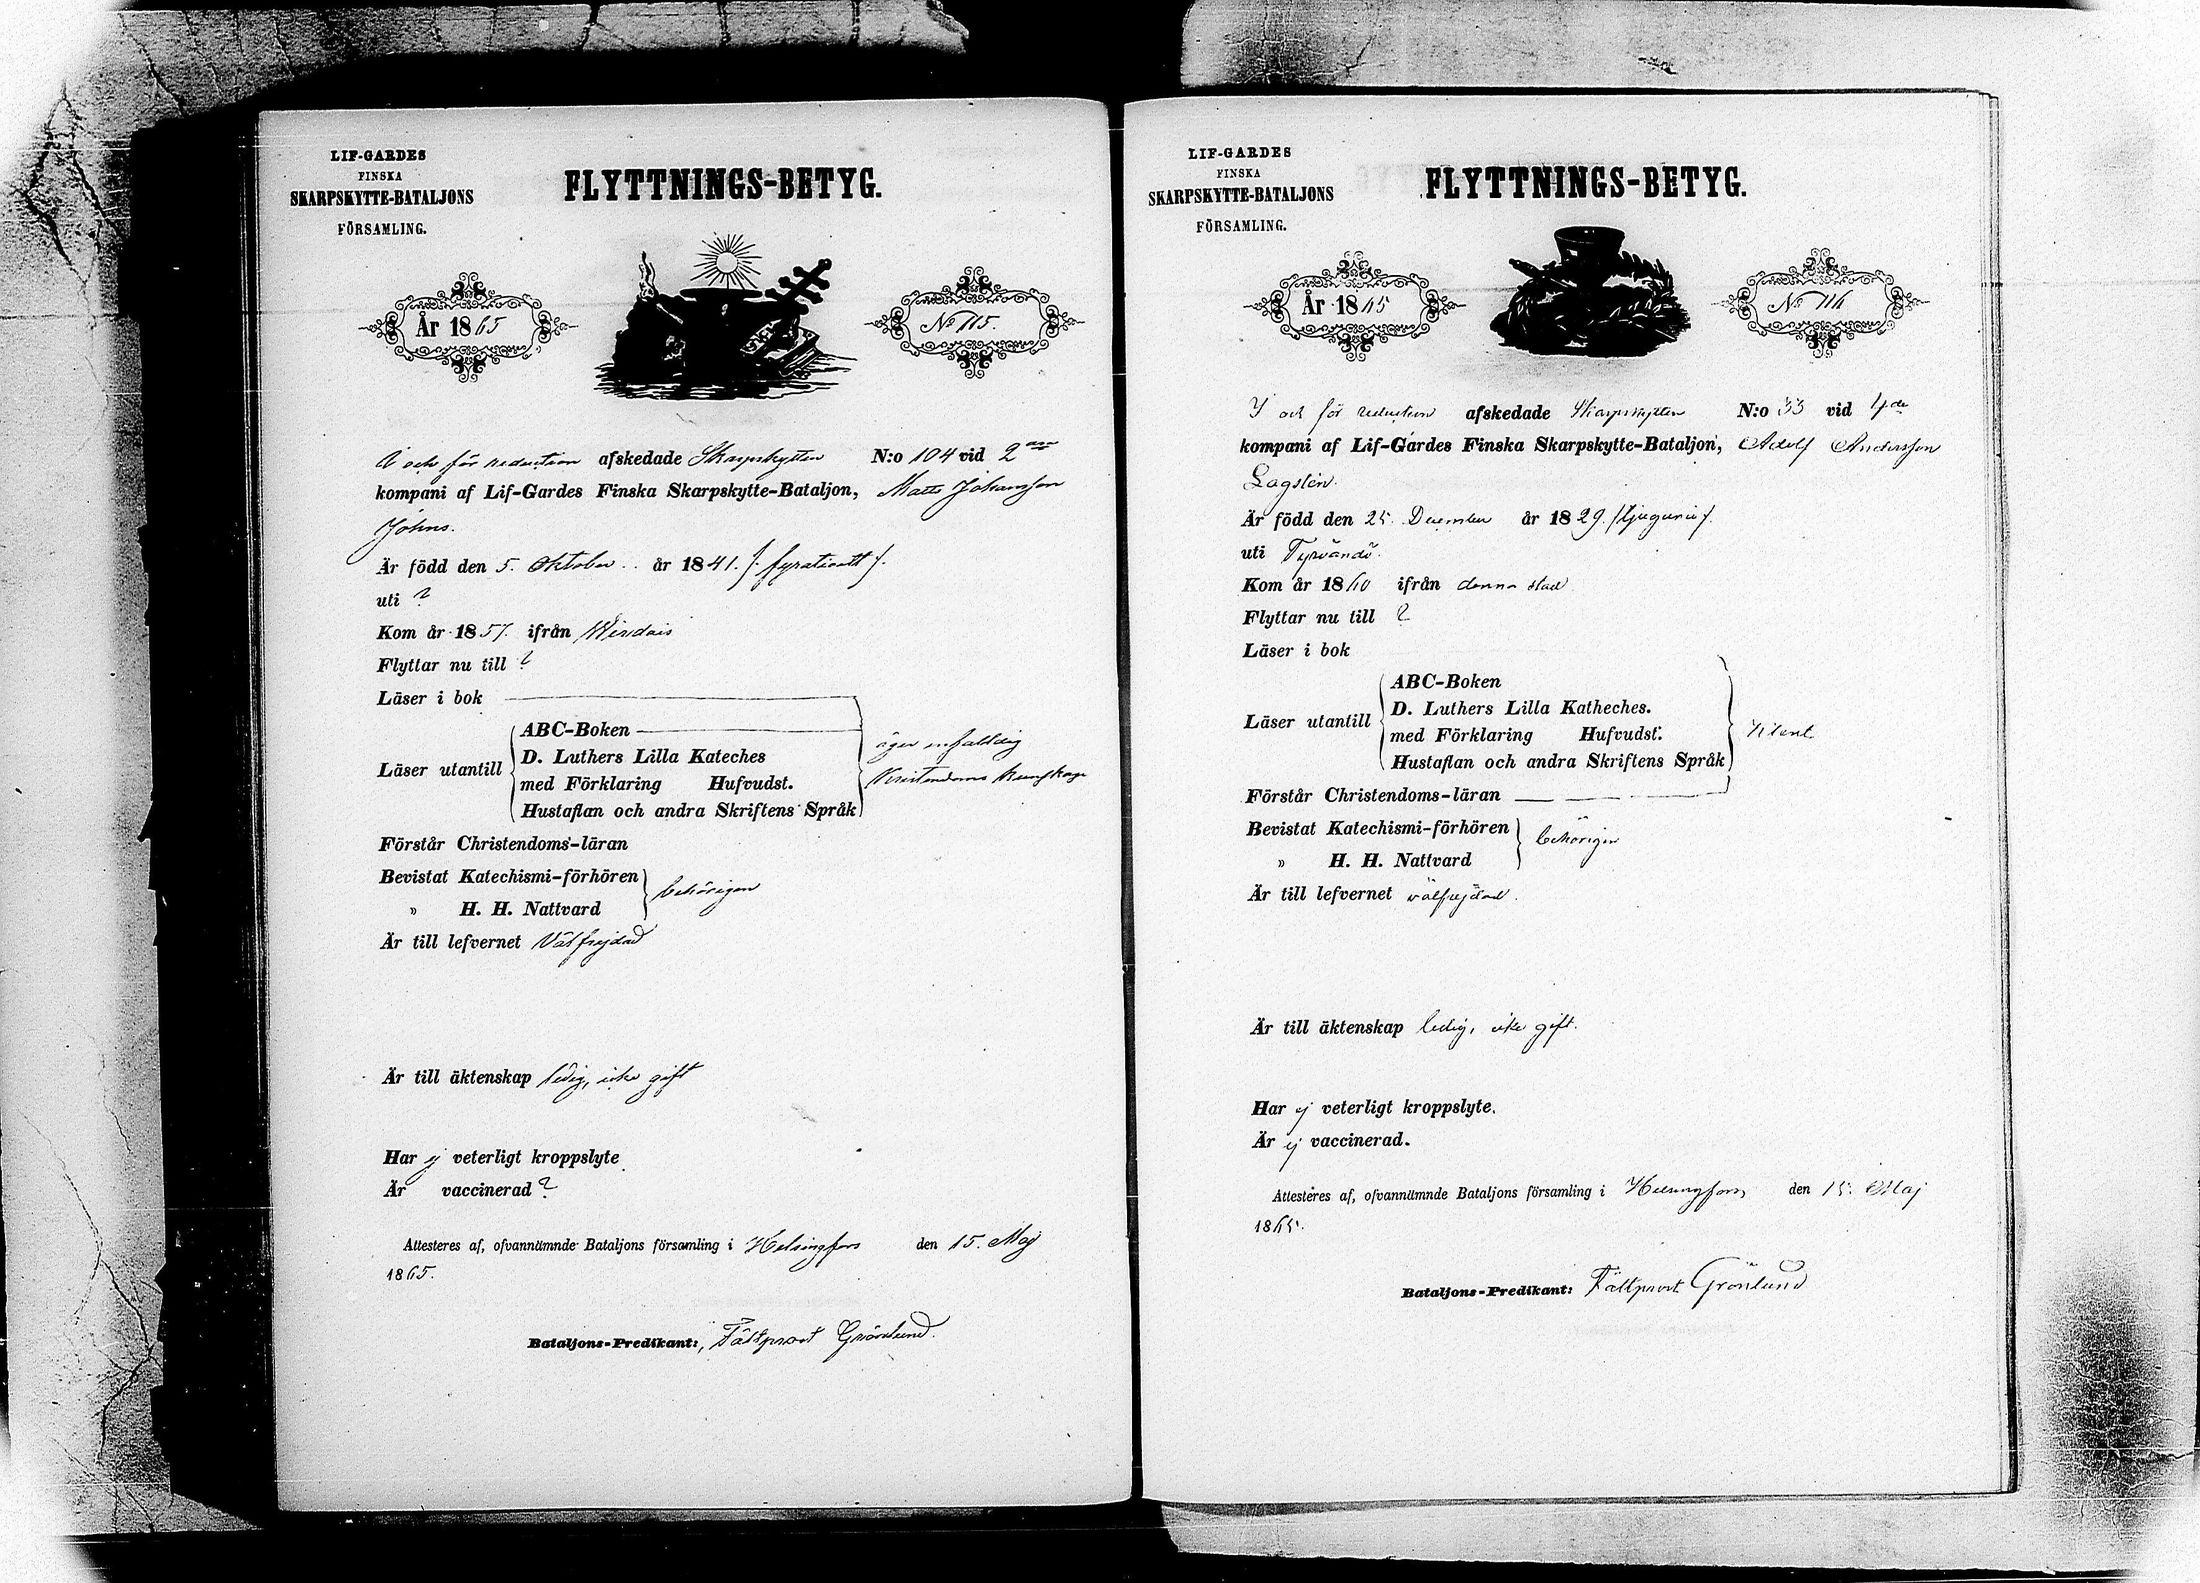 LIF-GARDES
FINSKA
SKARPSKYTTE-BATALJONS
FÖRSAMLING.
FLYTTNINGS-BETYG.
År 1865
No 115.
I och för reduction afskedade Skarpskytten N:o 104 vid 2
kompani af Lif-Gardes Finska Skarpskytte-Bataljon, Matts Johansson
Johns.
Är född den 5. Oktober .. år 1841. /: fyrationett /.
uti ?
Kom år 1857. ifrån
Flyttar nu till ?
Läser i bok
Läser utantill
ABC-Boken
D. Luthers Lilla Kateches
med Förklaring Hufvudst.
Hustaflan och andra Skriftens Språk
äger enfaldig
Kristendoms kunskap
Förstår Christendoms-läran
Bevistat Katechismi-förhören
" H. H. Nattvard
behörigen
Är till lefvernet Välfrejdad
Är till äktenskap ledig, icke gift
Har ej veterligt kroppslyte
Är vaccinerad ?
Attesteres af, ofvannämnde Bataljons församling i Helsingfors den 15. Maj
1865.
Bataljons-Predikant: Fältprost Grönlund.
LIF-GARDES
FINSKA
SKARPSKYTTE-BATALJONS
FÖRSAMLING.
FLYTTNINGS-BETYG.
År 1865
No 116
I och för reduction afskedade Skarpskytten N:o 33 vid 4de
kompani af Lif-Gardes Finska Skarpskytte-Bataljon, Adolf Andersson
Lagstén.
Är född den 25. December år 1829. /tjugunie/.
uti Tyrvändö.
Kom år 1860 ifrån denna stad
Flyttar nu till ?
Läser i bok
Läser utantill
ABC-Boken
D. Luthers Lilla Katheches.
med Förklaring Hufvudst.
Hustaflan och andra Skriftens Språk
Förstår Christendoms-läran
Bevistat Katechismi-förhören
" H. H. Nattvard
behörigen
Är till lefvernet välfrejdad.
Är till äktenskap ledig, icke gift.
Har ej veterligt kroppslyte.
Är ej vaccinerad.
Attesteres af, ofvannämnde Bataljons församling i Helsingfors den 15. Maj
1865.
Bataljons-Predikant: Fältprost Grönlund